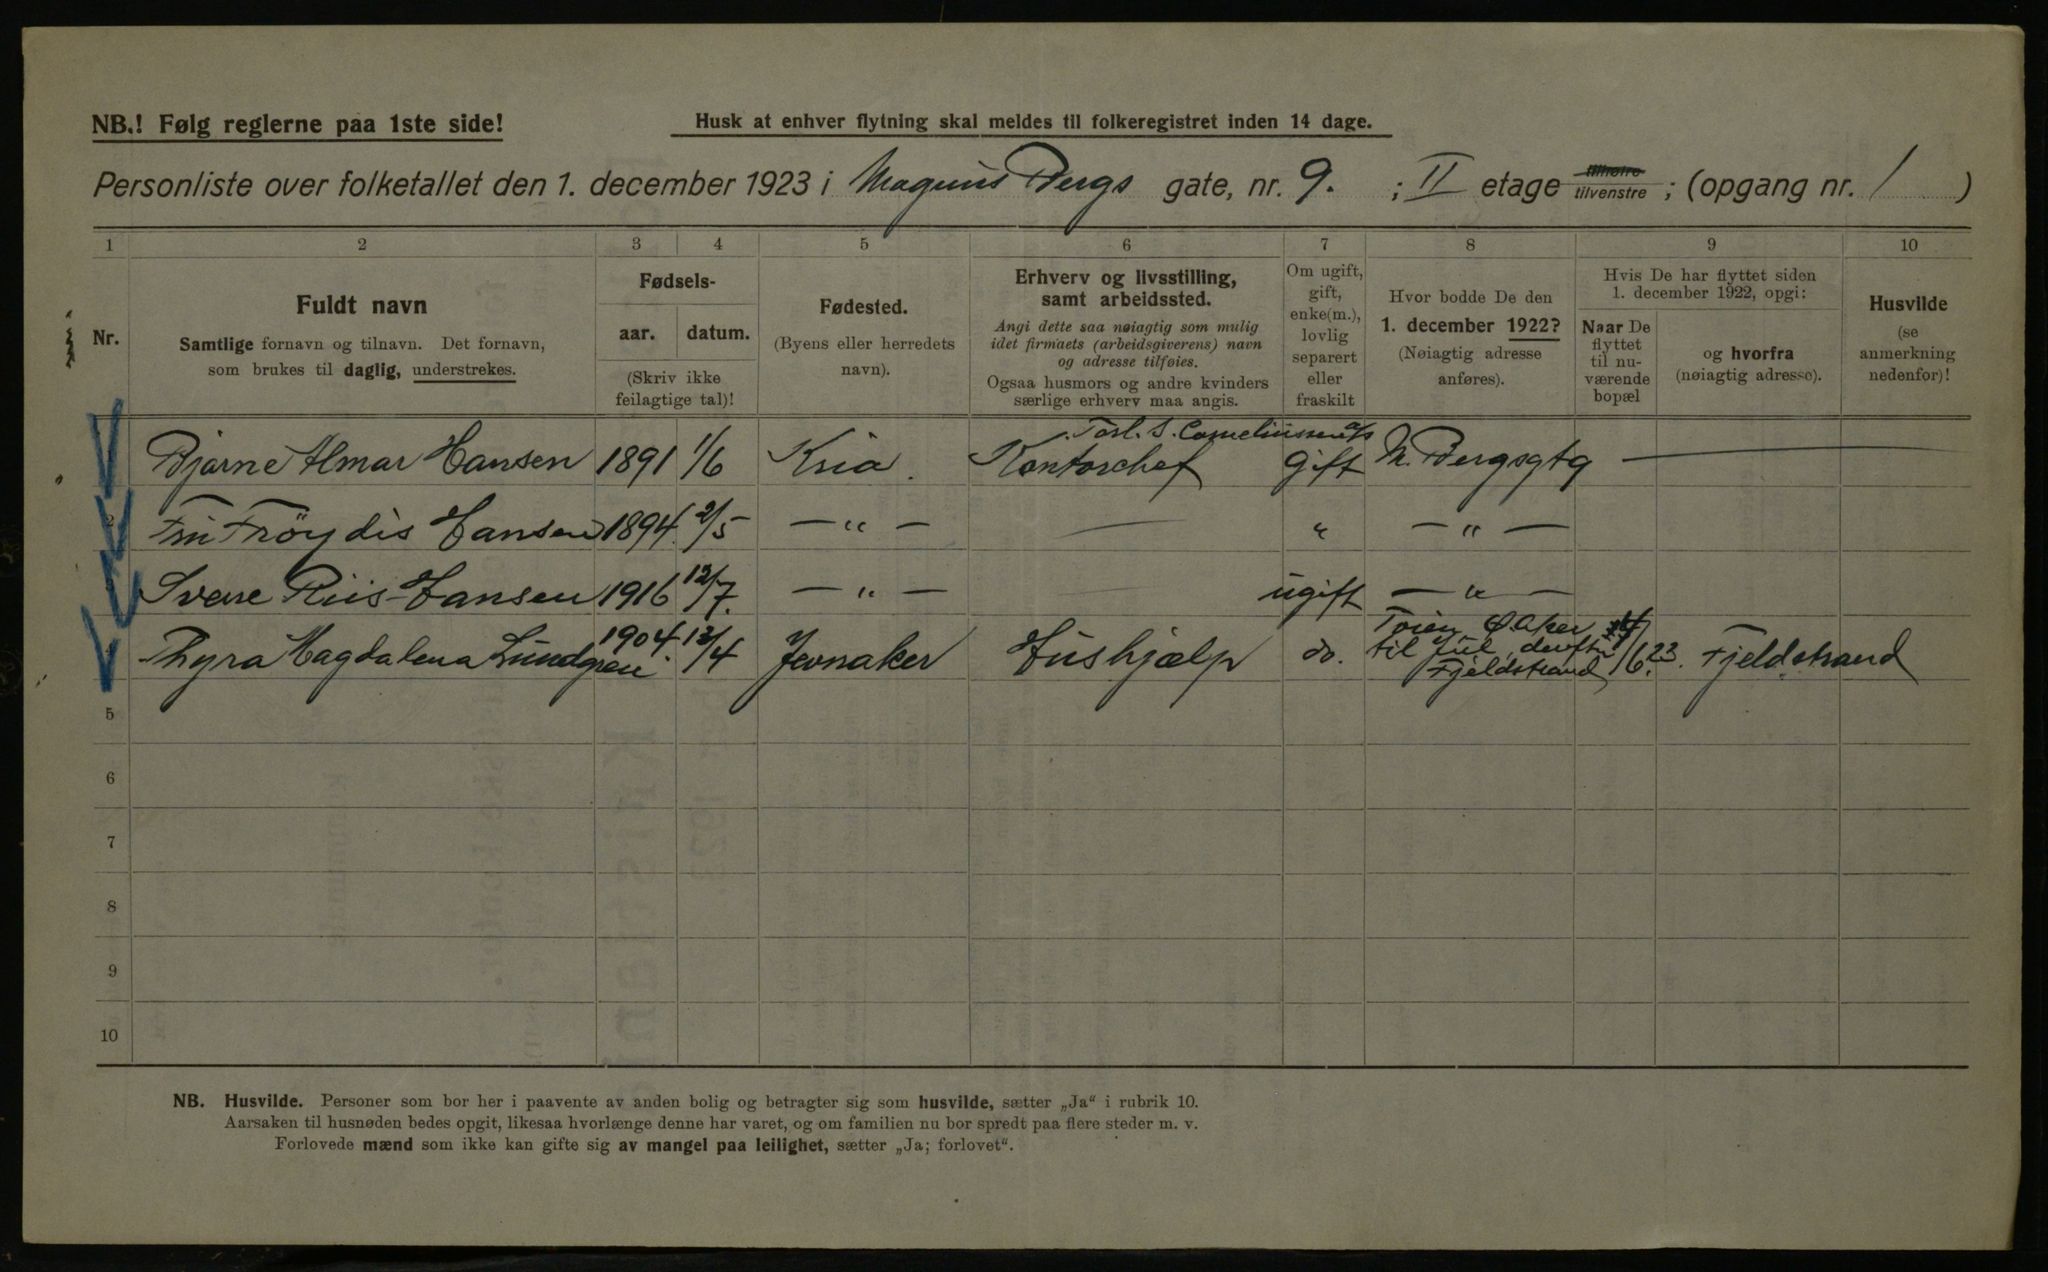 NB.! Følg reglerne paa 1ste side!
Husk at enhver flytning skal meldes til folkeregistret inden 14 dage.
Personliste over folketallet den 1. december 1923 i Magnus Bergs gate, nr. 9. ; II etage tilhøire tilvenstre ; (opgang nr. 1 )
1 2 3 4 5 6 7 8 9 10
Nr.
Fuldt navn
Samtlige fornavn og tilnavn. Det fornavn,
som brukes til daglig, understrekes.
Fødsels-
aar. datum.
(Skriv ikke
feilagtige tal)!
Fødested.
(Byens eller herredets
navn).
Erhverv og livsstilling,
samt arbeidssted.
Angi dette saa nøiagtig som mulig
idet firmaets (arbeidsgiverens) navn
og adresse tilføies.
Ogsaa husmors og andre kvinders
særlige erhverv maa angis.
Om ugift,
gift,
enke(m.),
lovlig
separert
eller
fraskilt
Hvor bodde De den
1. december 1922?
(Nøiagtig adresse
anføres).
Hvis De har flyttet siden
1. december 1922, opgi:
Naar De
flyttet
til nu-
værende
bopæl
og hvorfra
(nøiagtig adresse).
Husvilde
(se
anmerkning
nedenfor)!
S. Corneliussen a/s
Bjarne Almar Hansen 1891 1/6 Kria. Kontorchef gift M. Bergsgt 9 —
2 Fru Fröydis Hansen 1894. 2/5 — " — — " — " —
Sverre Riis-Hansen 1916 12/7. — " — ugift — " —
Thyra Magdalena Lundgren. 1904. 13/4 Jevnaker Hushjælp do. Töien Ø. Aker
til Jul, derefter
Fjeldstrand /6 23. Fjeldstrand
5
6
7
8
9
10
NB. Husvilde. Personer som bor her i paavente av anden bolig og betragter sig som husvilde, sætter „Ja“ i rubrik 10.
Aarsaken til husnøden bedes opgit, likesaa hvorlænge denne har varet, og om familien nu bor spredt paa flere steder m. v.
Forlovede mænd som ikke kan gifte sig av mangel paa leilighet, sætter „Ja; forlovet“.